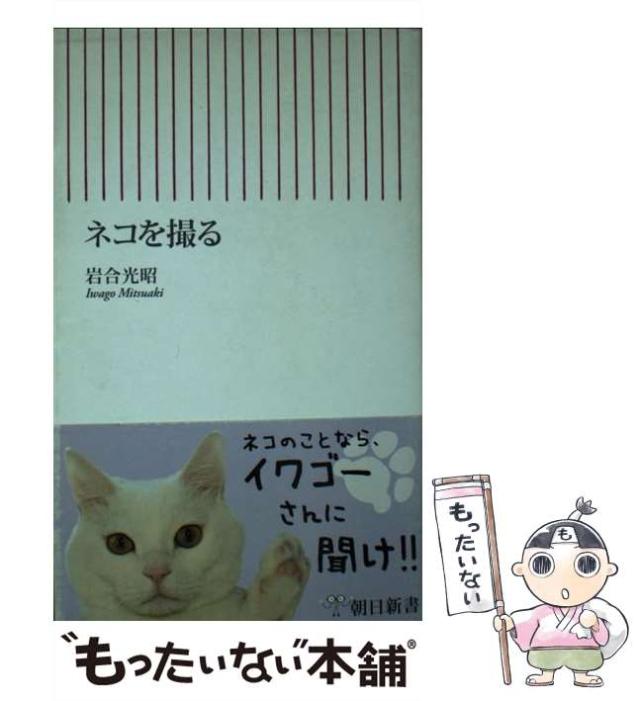 ネコを撮る
岩合光昭
Iwago Mitsuaki
ネコのことなら、
イワゴー
さんに
聞け!!
朝日新書
もったいない
も
"もったいない"本舗®